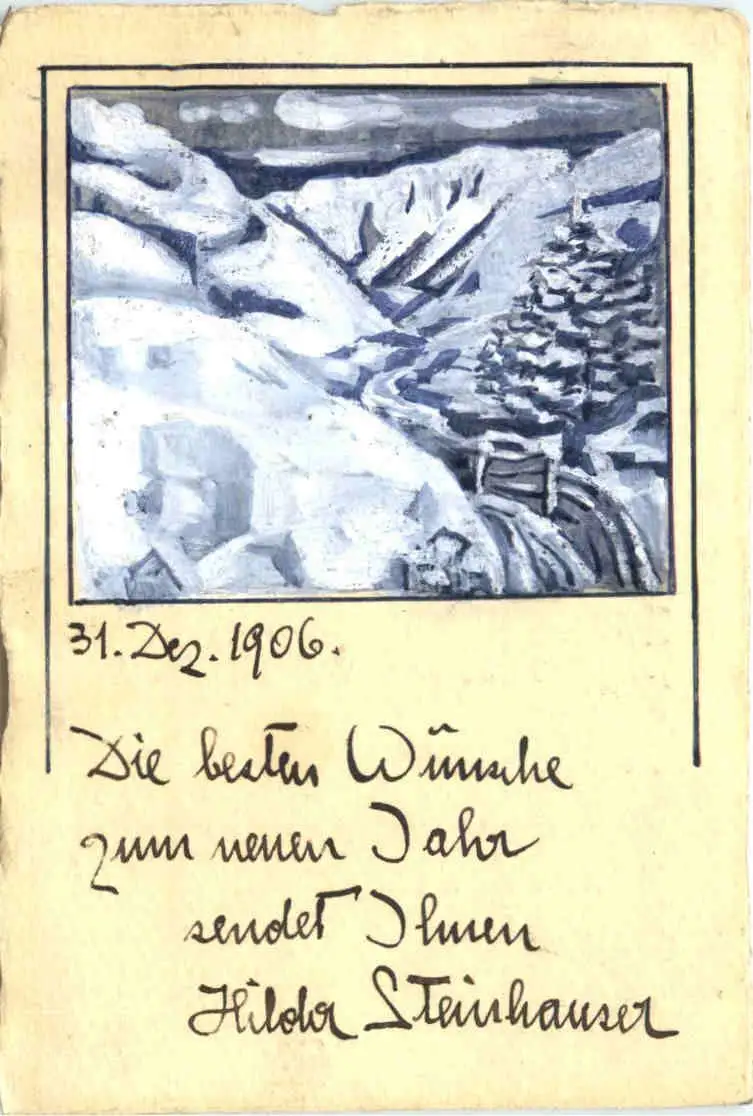 31. Dez. 1906.
Die besten Wünsche
zum neuen Jahr
sendet Ihnen
Hilda Steinhauser